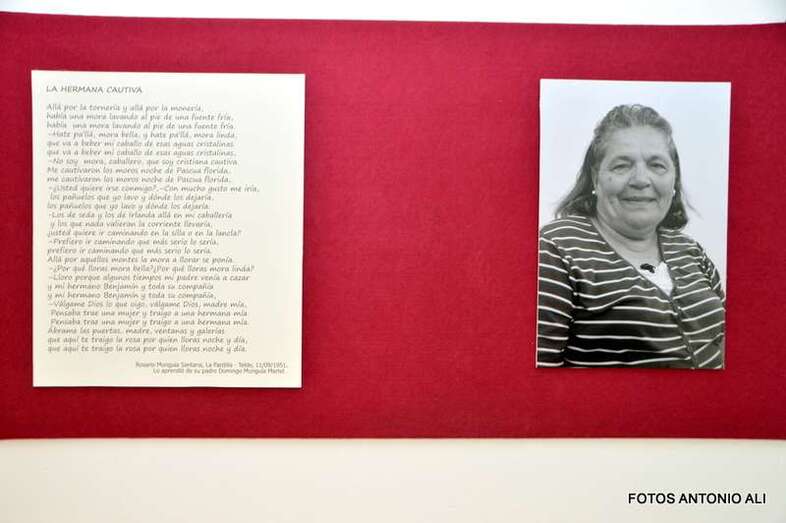 LA HERMANA CAUTIVA
Allá por la tornería y allá por la monería,
había una mora lavando al pie de una fuente fría,
había una mora lavando al pie de una fuente fría.
-Hate pa'llá, mora bella, y hate pa'llá, mora linda,
que va a beber mi caballo de esas aguas cristalinas,
que va a beber mi caballo de esas aguas cristalinas.
-No soy mora, caballero, que soy cristiana cautiva.
Me cautivaron los moros noche de Pascua florida,
me cautivaron los moros noche de Pascua florida.
-¿Usted quiere irse conmigo?.-Con mucho gusto me iría,
los pañuelos que yo lavo y dónde los dejaría,
los pañuelos que yo lavo y dónde los dejaría.
-Los de seda y los de irlanda allí en mi caballería
y los que nada valieran la corriente llevaría,
¿usted quiere ir caminando en la silla o en la lancía?
-Prefiero ir caminando que más serio lo sería,
prefiero ir caminando que más serio lo sería.
Allá por aquellos montes la mora a llorar se ponía.
-¿Por qué lloras mora bella?¿Por qué lloras mora linda?
-Lloro porque algunos tiempos mi padre venía a cazar
y mi hermano Benjamín y toda su compañía
y mi hermano Benjamín y toda su compañía,
-Válgame Dios lo que oigo, válgame Dios, madre mía,
Pensaba trae una mujer y traigo a una hermana mía.
Pensaba trae una mujer y traigo a una hermana mía
Ábrama las puertas, madre, ventanas y galerías
que aquí te traigo la rosa por quien lloras noche y día,
que aquí te traigo la rosa por quien lloras noche y día.
Rosario Munguía Santana, La Pardilla - Telde, 11/09/1951.
Lo aprendió de su padre Domingo Munguía Martel
FOTOS ANTONIO ALI